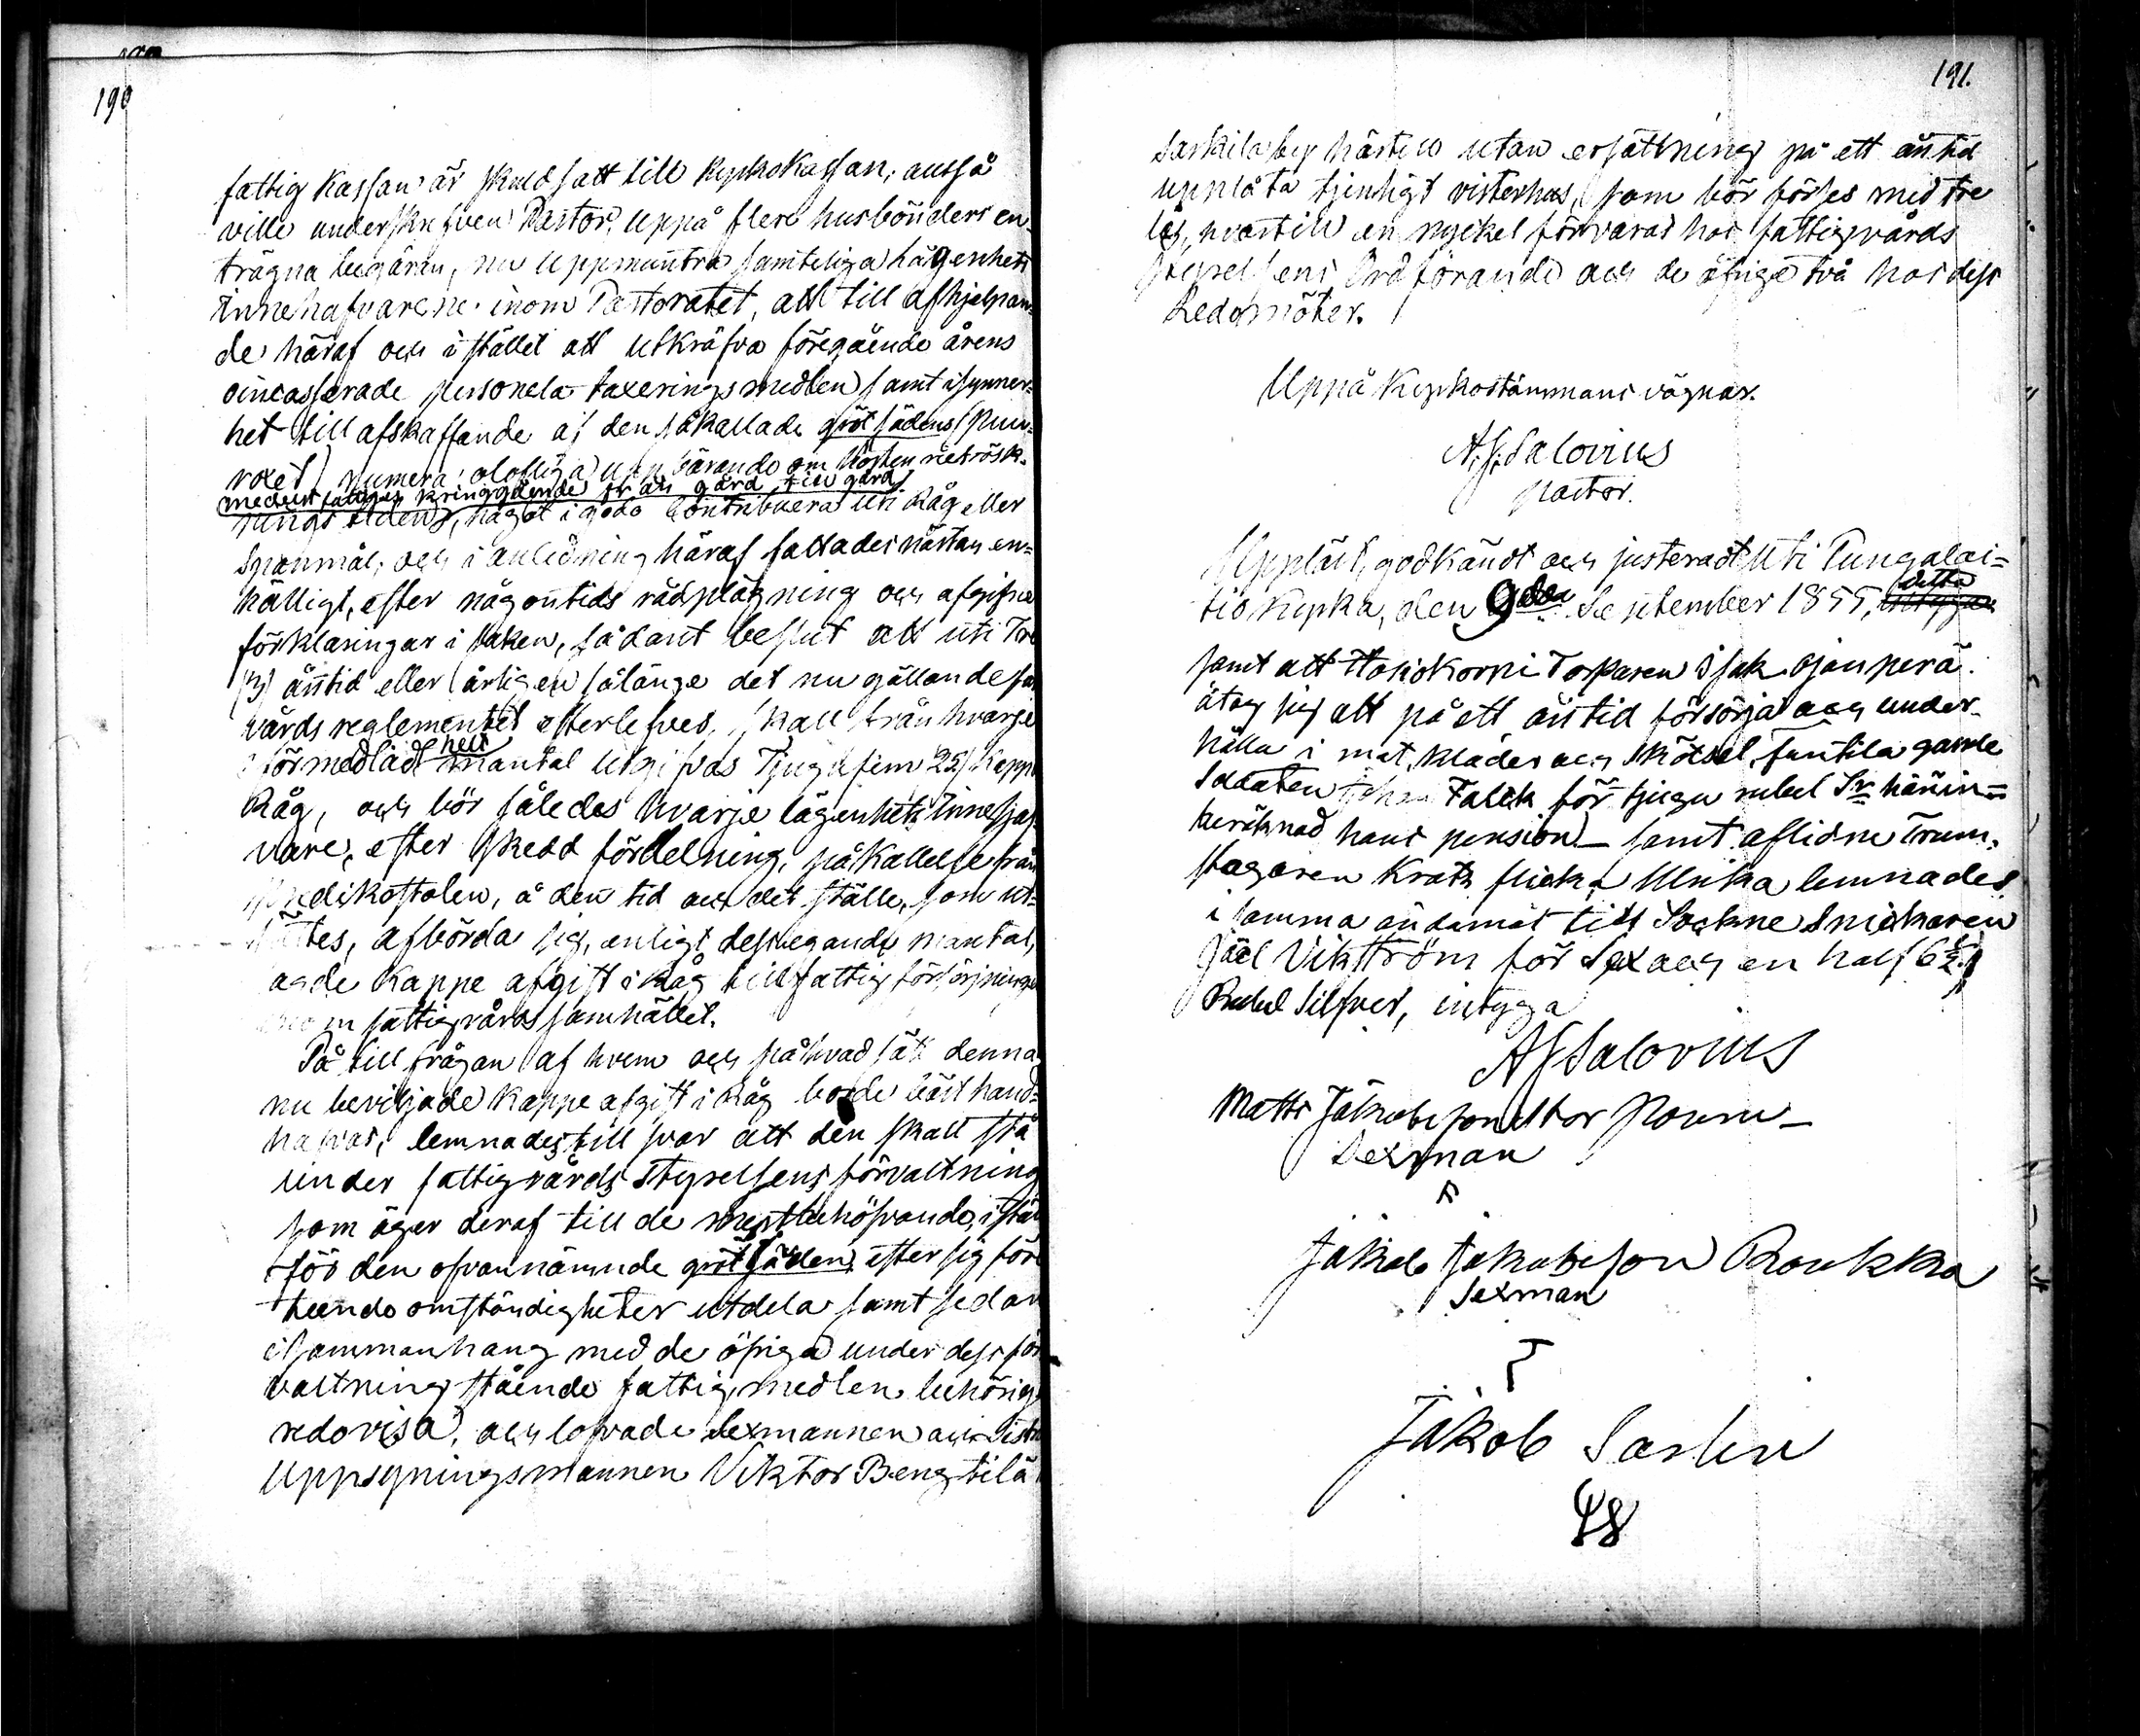 190
fattig Kassan är skuldsatt till Kyrkokassan; altså
ville underskrifven Pastor, uppå flere husbönders en-
trägna begäran, nu uppmuntra samteliga Lägenhets
Innehafvarene inom Pastoratet, att till afhjelpan-
de häraf och i stället att utkräfva föregående årens
oincasserade personela taxeringsmedlen samt isynner-
het till afskaffande af den såkallade grötsädens (Puu-
rolliga) numera olofliga uppbärande om hösten riströsk-
medelst fattiges kringgående från gård till gård
nings tiden, något i godo contribuera uti Råg eller
Spanmål; och i anledning häraf fattades nästan en-
hälligt, efter någontids rådplägning och afgifne
förklaringar i saken, sådant beslut att uti Tre
(3) årstid eller årligen sålänge det nu gällande
vårds reglementet efterlefves, skall från hvarje
oförmedladt helt mantal utgifvas Tjugufem 25 Kappar
Råg, och bör således hvarje lägenhets Innehaf-
vare, efter skedd fördelning, påkallelse från
Predikostolen, å den tid och det ställe, som ut-
sättes, afbörda sig, enligt dess egande mantal,
Kappe afgift i Råg till fattigförsörjningen
inom fattigvårds samhället.
På tillfrågan af hvem och på hvad sätt denna
nu beviljade Kappe afgift i Råg borde bäst hand-
hafvas, lemnades till svar att den skall stå
under fattigvårds Styrelsens förvaltning
som äger deraf till de mestbehöfvande, i stäl
för den ofvannämnde grötsäden, efter sig före
teende omständigheter utdela samt sedan
i sammanhang med de öfriga under dess för
valtning stående fattigmedlen behörigen
redovisa, och lofvade Sexmannen och
Uppsyningsmannen Viktor Bengtilä
191.
Sarkila by härtill utan ersättning på ett års tid
upplåta tjenligt visterhus, som bör förses med tre
lås, hvartill en nyckel förvaras hos fattigvårds
Styrelsens Ordförande och de öfrige två hos dess
Ledamöter.
Uppå Kyrkostämmans vägnar.
A. F. Salovius
Pastor.
Uppläst, godkändt och justeradt uti Pungalai-
tio Kyrka, den 9de September 1855, detta
samt att Torparen Isak Ojanperä
åtog sig att på ett års tid försörja och under-
hålla i mat, kläder och skötsel, Funtila gamle
Soldaten Johan Falck för tjugu rubel Sr härin-
beräknad hans pension – samt aflidne Trum-
slagaren Kratz flicka Ulrika lemnades
i samma ändamål till Sockne Snickaren
Joel Vikström för Sex och en half 6½
Rubel Silfver, intyga
AFSalovius
Matts Jakobsson Stor Poura –
Sexman
Jakob Jakobsson Roukka
Sexman
Jakob Sarlin